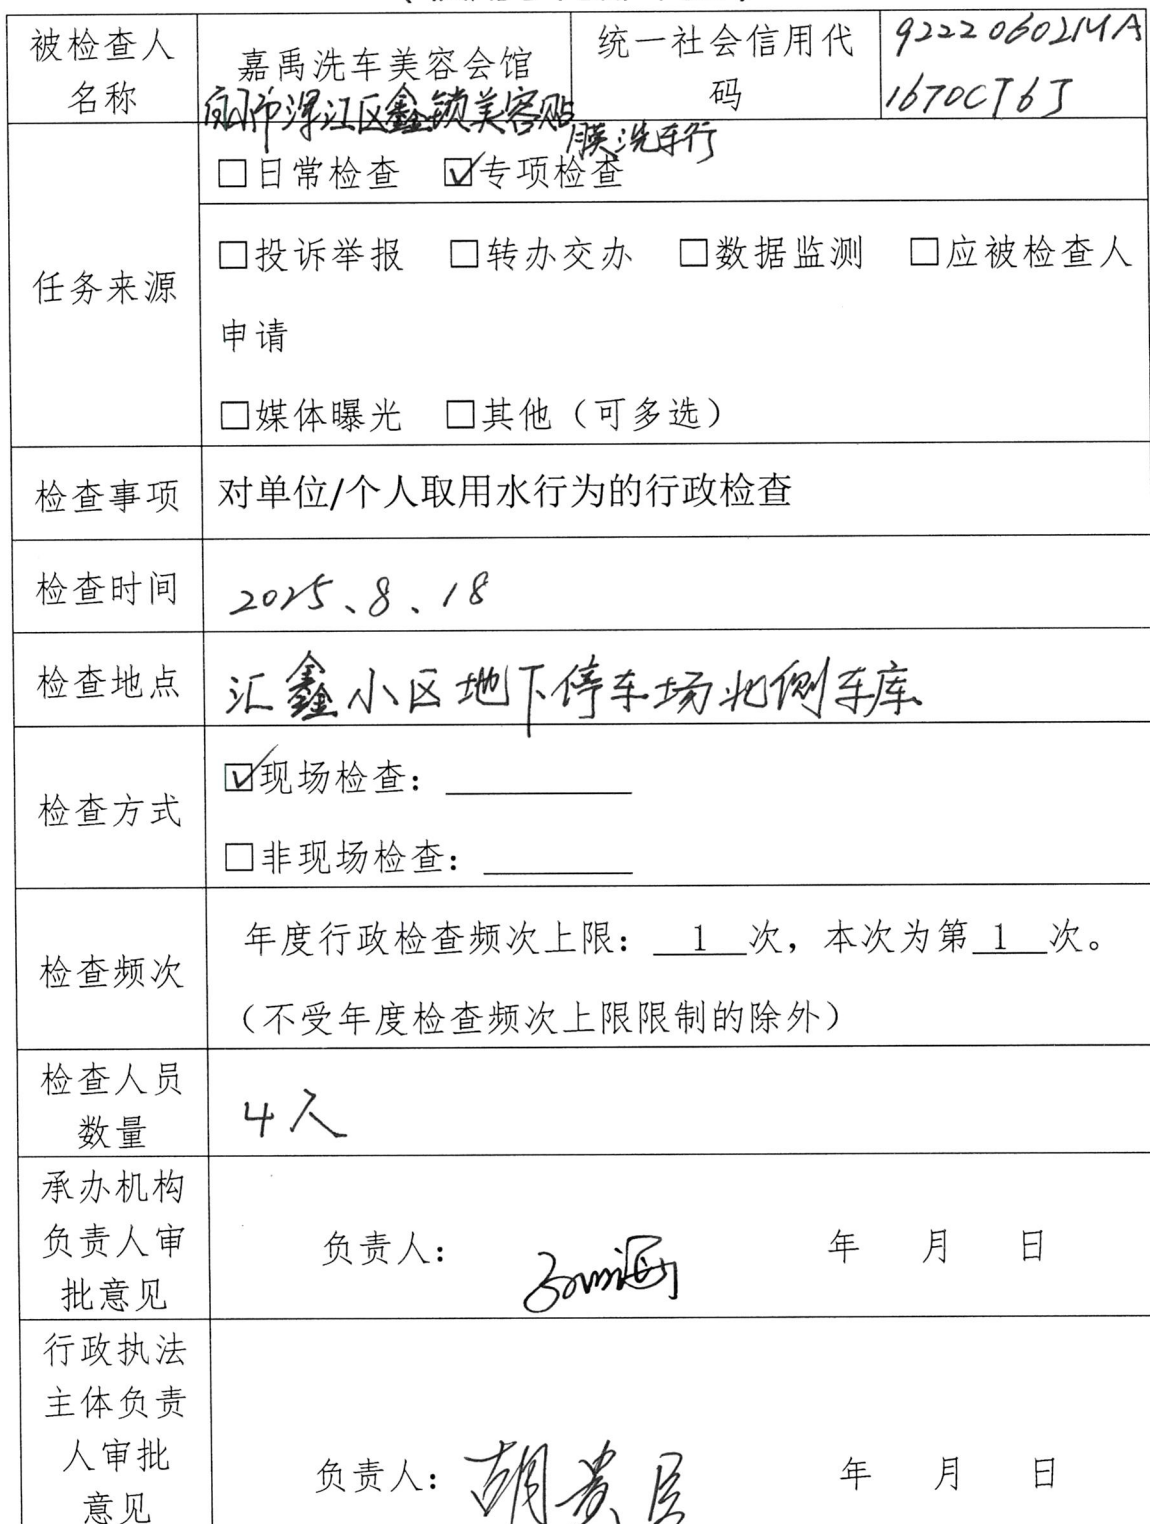 被检查人
名称
嘉禹洗车美容会馆
白山市浑江区鑫锁美容贴
膜洗车行
统一社会信用代
码
92220602MA
1670CT6J
任务来源
□日常检查 ☑专项检查
□投诉举报 □转办交办 □数据监测 □应被检查人
申请
□媒体曝光 □其他（可多选）
检查事项
对单位/个人取用水行为的行政检查
检查时间
2025、8、18
检查地点
汇鑫小区地下停车场北侧车库
检查方式
☑现场检查：
□非现场检查：
检查频次
年度行政检查频次上限： 1 次，本次为第 1 次。
（不受年度检查频次上限限制的除外）
检查人员
数量
4人
承办机构
负责人审
批意见
负责人： 年 月 日
行政执法
主体负责
人审批
意见
负责人：胡贵臣 年 月 日